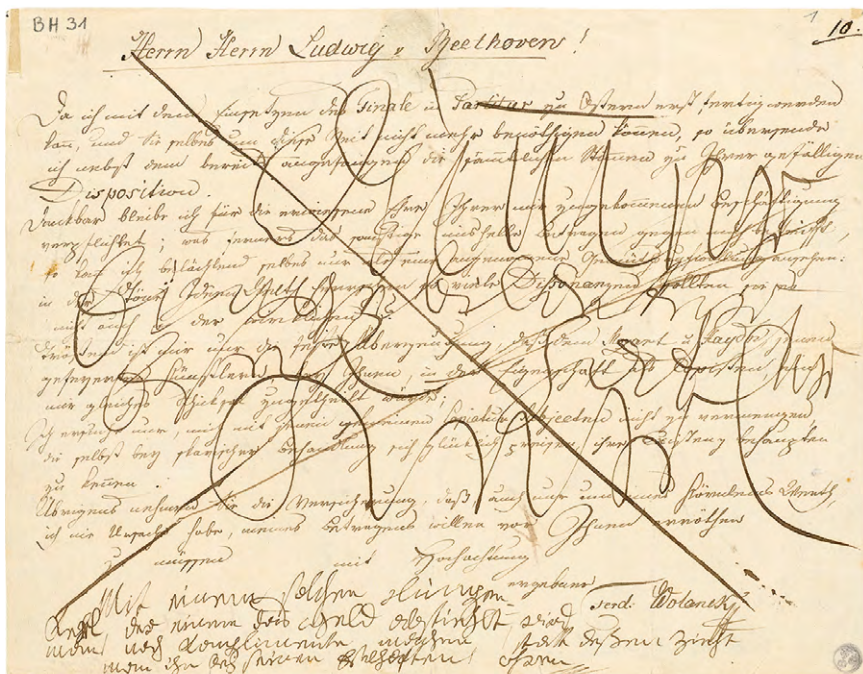 BH 31
1
10.
Herrn Herrn Ludwig v Beethoven!
Da ich mit dem Einsetzen des Finale in Partitur zu Ostern erst fertig werden
kann, und Sie selbes um diese Zeit nicht mehr benöthigen können, so übersende
ich nebst dem bereits angefangenen die sämmtlichen Stimmen zu Ihrer gefälligen
Disposition.
Dankbar bleibe ich für die erwiesene Ehre Ihrer mir zugekommenen Beschäftigung
verpflichtet; was ferners das sonstige mishellige Betragen gegen mich betrifft,
so kann ich belächlend selbes nur als eine angenommene Gemüthsaufwallung ansehen:
in der Töne Ideen Welth herrschen so viele Dissonanzen sollten sie es
nicht auch in der wirklichen?
Tröstend ist mir nur die feste Überzeugung, daß dem Mozart u Haydn, jenen
gefeyerten Künstlern, bey Ihnen, in der Eigenschaft als Copisten, ein
mir gleiches Schicksal zugetheilt würde;
Ich ersuche nur, mich mit jenen gemeinen Copiatur Subjecten nicht zu vermengen
die selbst bey sklavischer Behandlung sich glücklich preisen, ihre Existenz behaupten
zu können.
Übrigens nehmen Sie die Versicherung, daß auch nur um eines Körnleins Werth,
ich nie Ursache habe, meines Betragens willen vor Ihnen erröthen
zu müssen
mit Hochachtung
ergebener
Ferd. Wolanek
Dumer
Kerl
Mit einem solchen Lumpen
Kerl, der einem das Geld abstiehlt, wird
man noch Komplimente machen, statt deßen zieht
man ihn bey seinen Eselhaften ohren